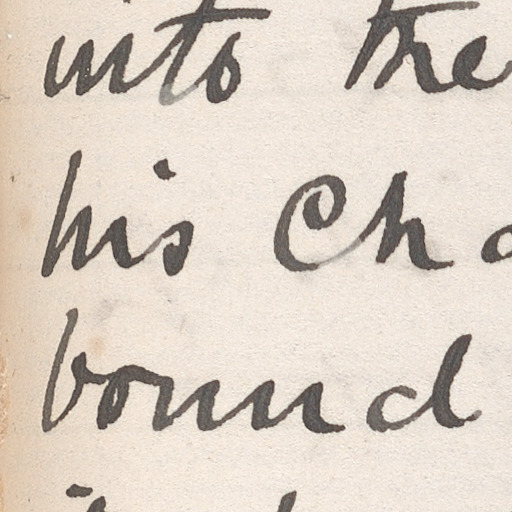 into the
his Cha
bound